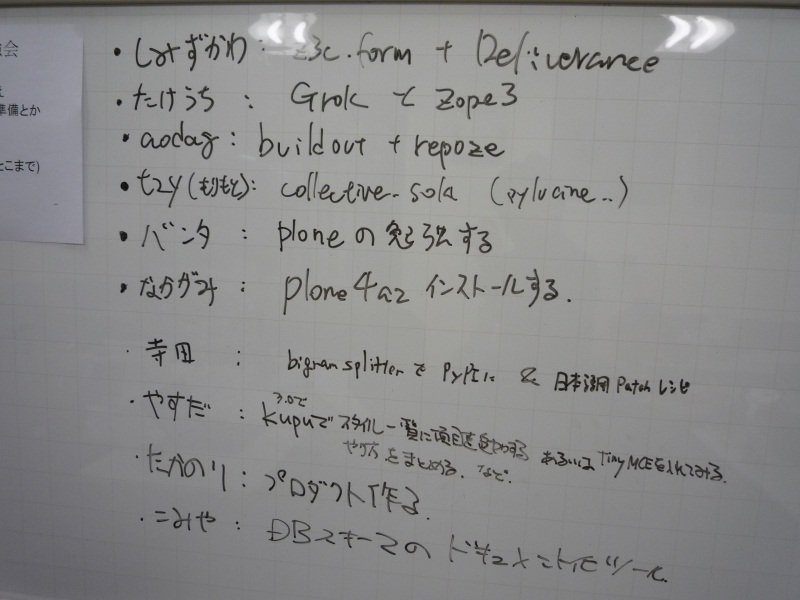 会
準備とか
とこまで)
・しみずかわ: z3c.form + Deliverance
・たけうち: Grok と Zope3
・aodag: buildout + repoze
・t2y(もりもと): collective.solr (pylucine..)
・バンタ: ploneの勉強する
・なかがみ: plone4a2 インストールする.
・寺田: bigramsplitterを PyPIに & 日本語用 Patch レシピ
・やすだ: 3.0で kupuでスタイル一覧に項目を追加する あるいは TinyMCEを入れてみる.
やり方をまとめる. など.
・たかのり: プロダクト作る.
・こみや: DBスキーマの ドキュメント化ツール.